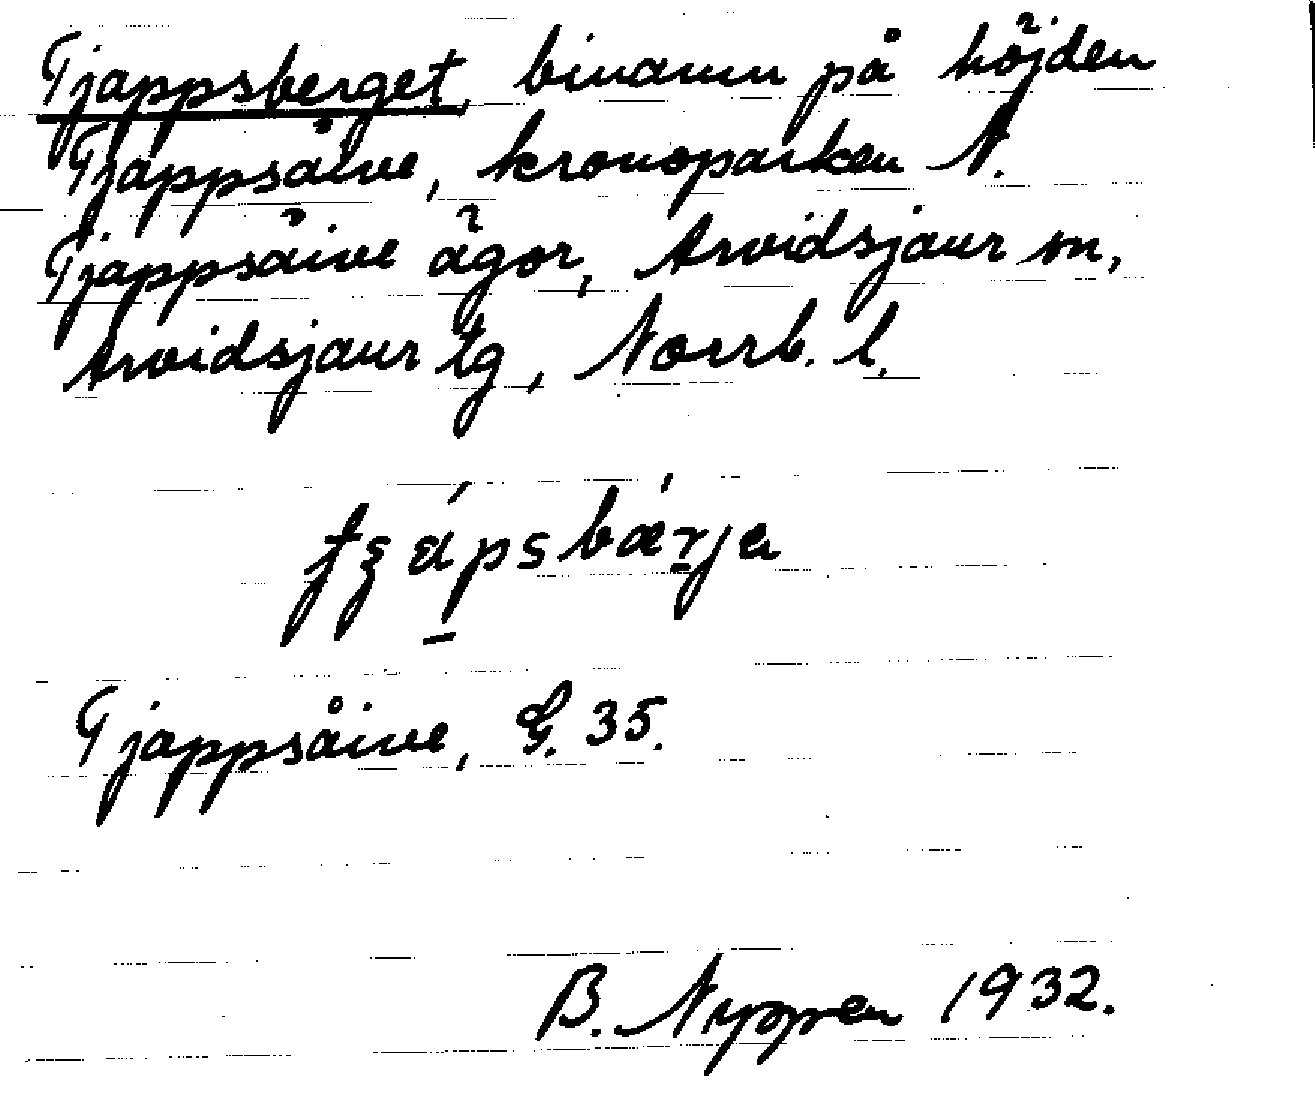 Tjappsberget, binamn på höjden
Tjappsåive, kronoparken N.
Tjappsåive ägor, Arvidsjaur sn,
Arvidsjaur tg, Norrb. l.
Tjappsåive, G. 35.
B. Nyppen 1932.